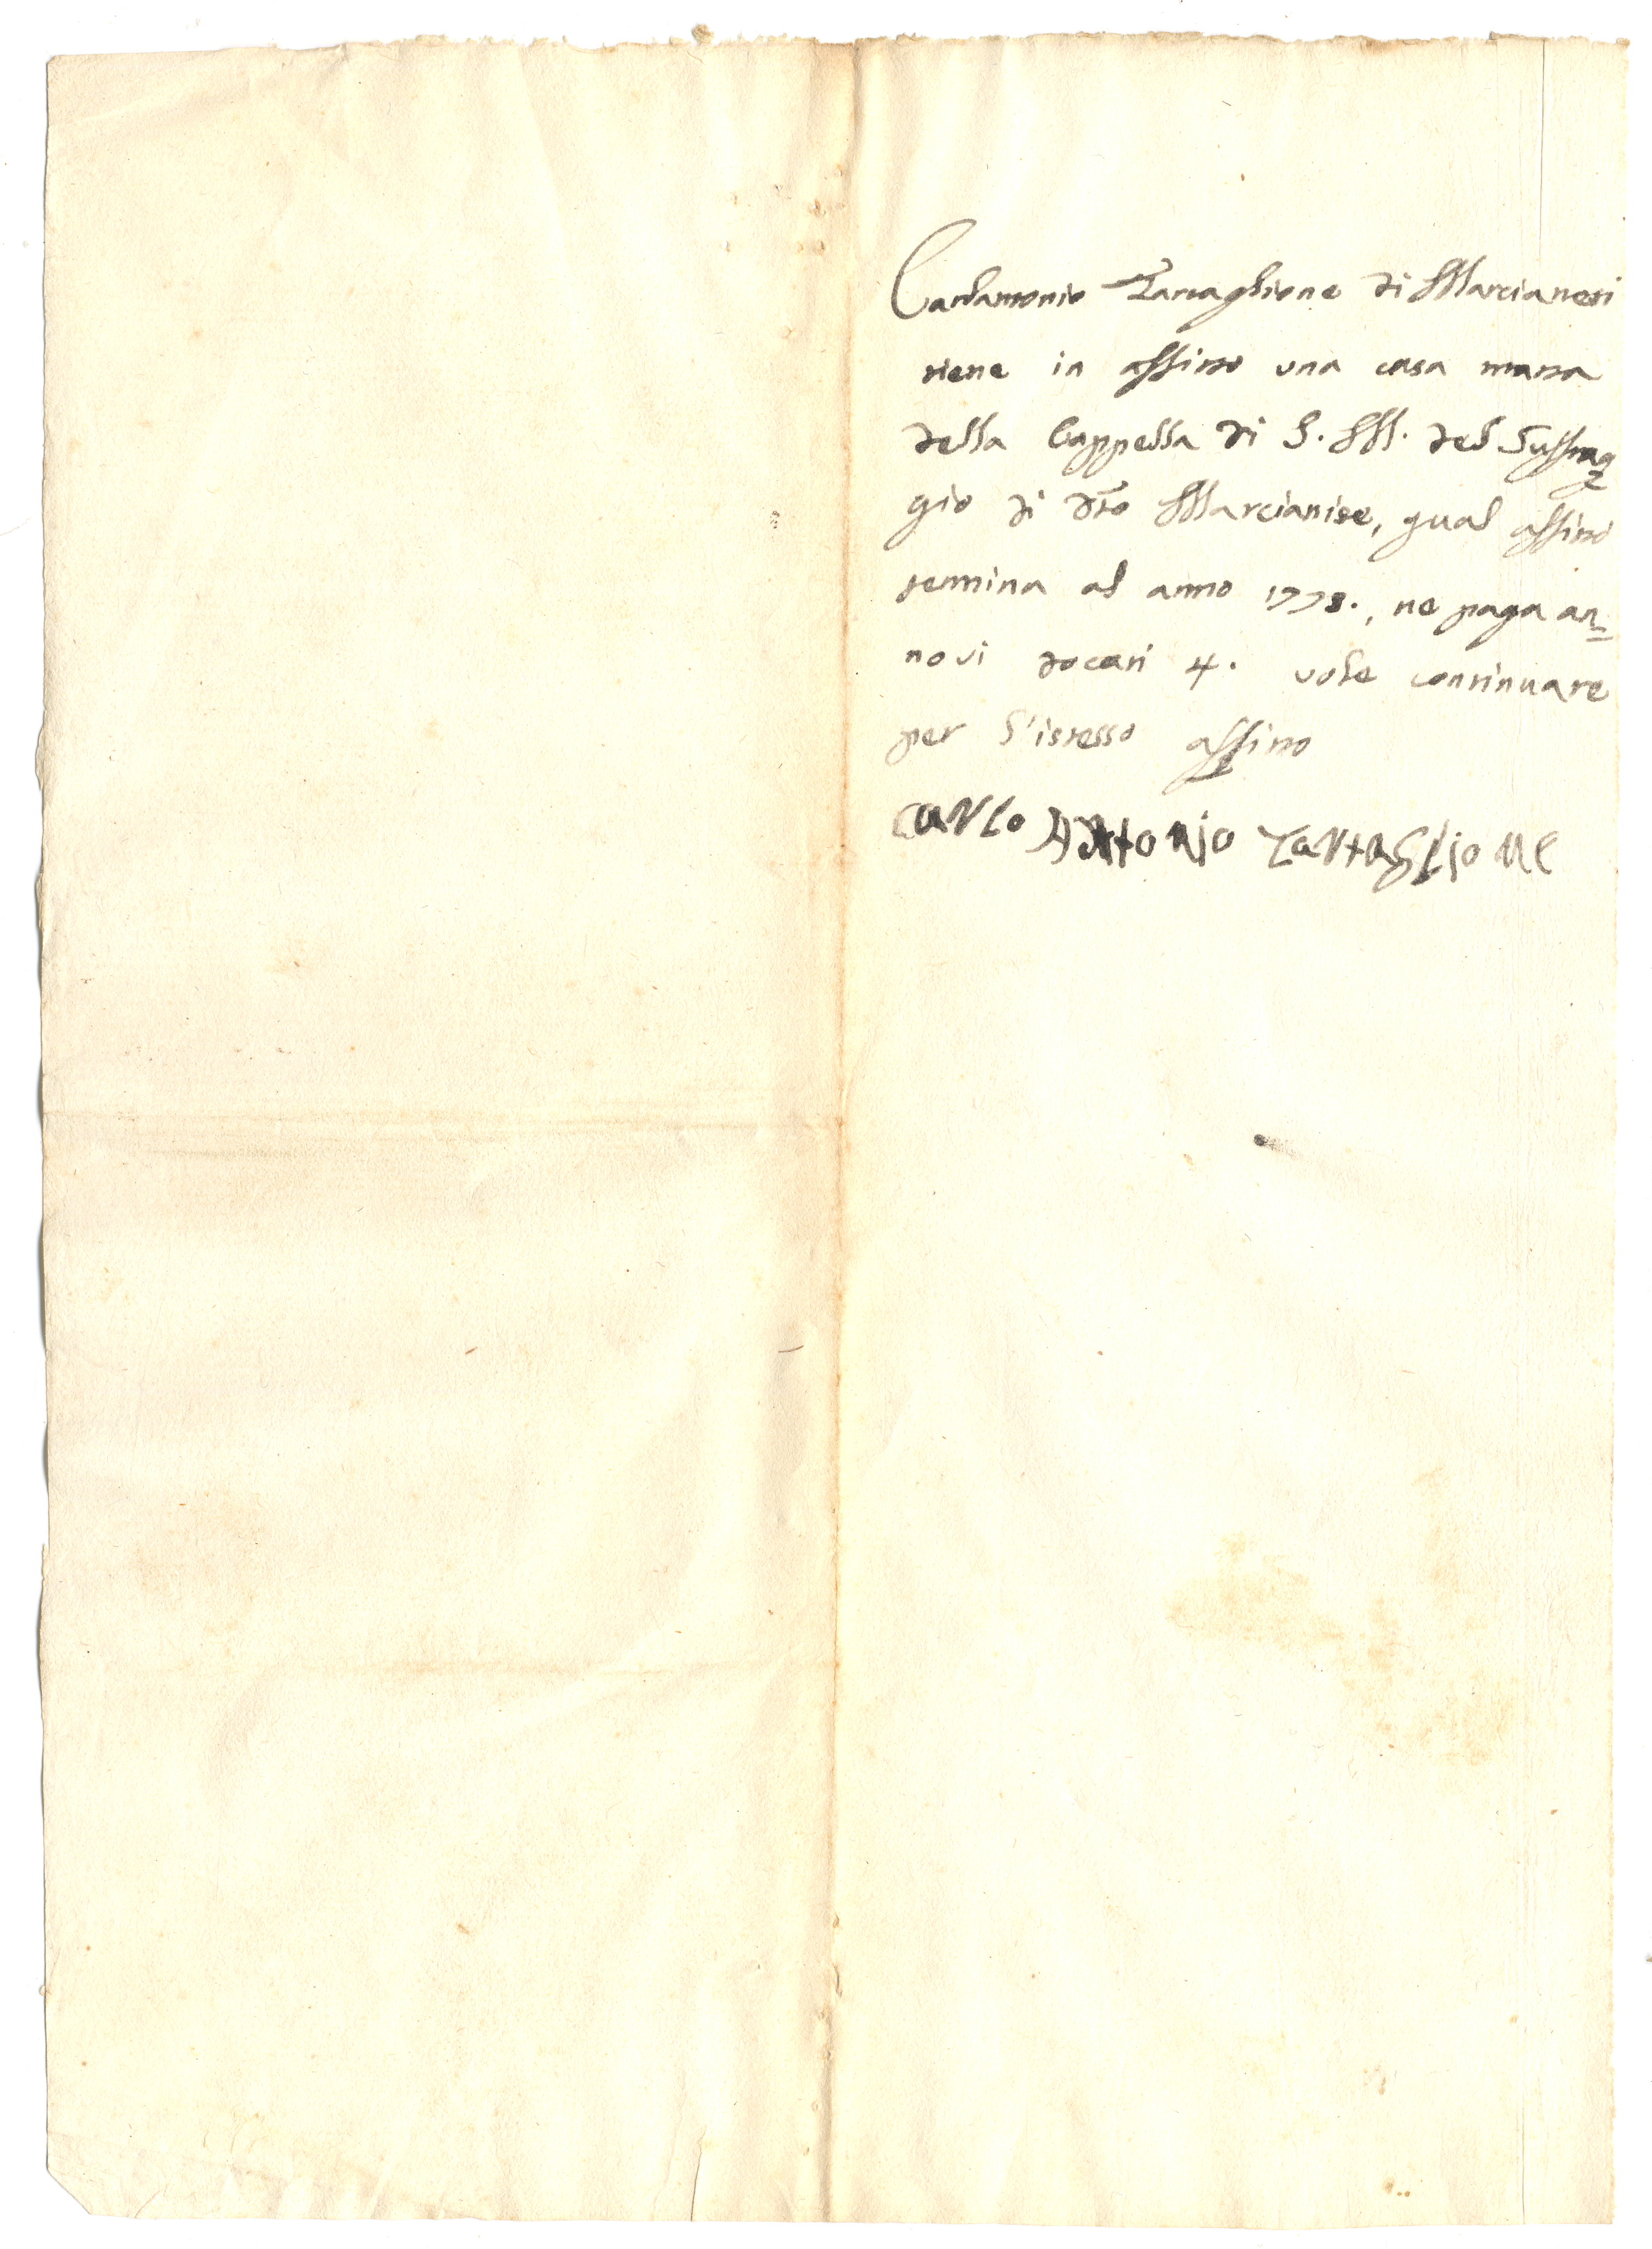 Carlantonio Tartaglione di Marcianesi
tiene in affitto una casa matta
della Cappella di S. M. del Suffrag=
gio di dto Marcianise, qual affitto
termina al anno 1778., ne paga an=
novi docati 4. vole continuare
per l'istesso affitto
Carlo Antonio Tartaglione